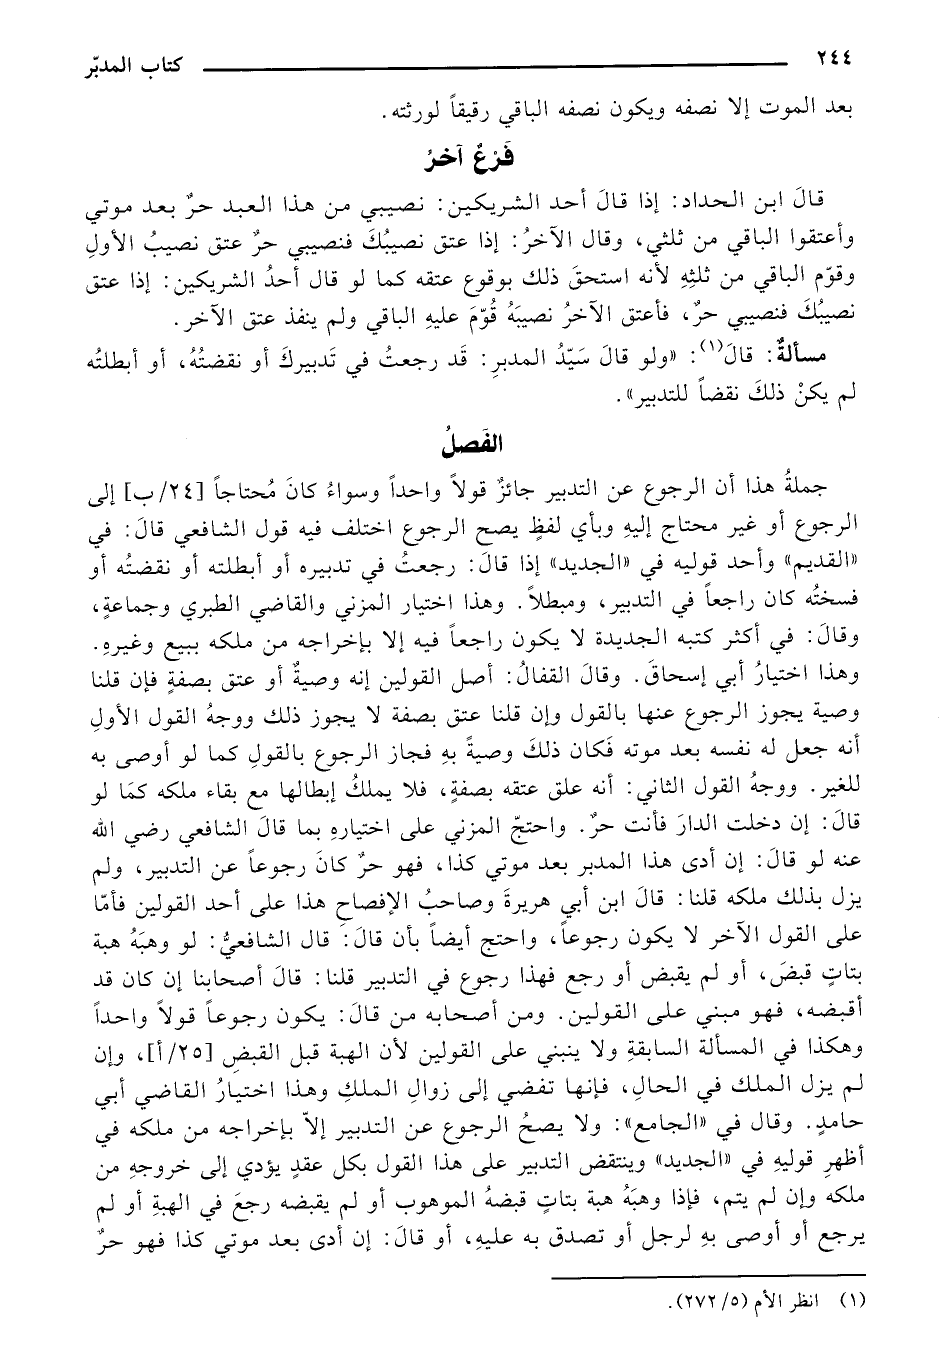 ٢٤٤ كتاب المدبّر
بعد الموت إلا نصفه ويكون نصفه الباقي رقيقاً لورثته.
فَرْعٌ آخرُ
قالَ ابن الحداد: إذا قالَ أحد الشريكين: نصيبي من هذا العبد حرٌ بعد موتي
وأعتقوا الباقي من ثلثي، وقال الآخرُ: إذا عتق نصيبُكَ فنصيبي حرٌ عتق نصيبُ الأولِ
وقوّم الباقي من ثلثِهِ لأنه استحقَ ذلك بوقوع عتقه كما لو قال أحدُ الشريكين: إذا عتق
نصيبُكَ فنصيبي حرٌ، فأعتق الآخرُ نصيبَهُ قُوّمَ عليهِ الباقي ولم ينفذ عتق الآخر.
مسألةٌ: قالَ(١): «ولو قالَ سَيّدُ المدبرِ: قَد رجعتُ في تَدبيركَ أو نقضتُهُ، أو أبطلتُه
لم يكنْ ذلكَ نقضاً للتدبير».
الفَصلُ
جملةُ هذا أن الرجوع عن التدبير جائزٌ قولاً واحداً وسواءُ كانَ مُحتاجاً [٢٤/ ب] إلى
الرجوع أو غير محتاج إليهِ وبأي لفظٍ يصح الرجوع اختلف فيه قول الشافعي قالَ: في
«القديم» وأحد قوليه في «الجديد» إذا قالَ: رجعتُ في تدبيره أو أبطلته أو نقضتُه أو
فسختُه كان راجعاً في التدبير، ومبطلاً. وهذا اختيار المزني والقاضي الطبري وجماعةٍ،
وقالَ: في أكثر كتبه الجديدة لا يكون راجعاً فيه إلا بإخراجه من ملكه ببيع وغيرهِ.
وهذا اختيارُ أبي إسحاقَ. وقالَ القفالُ: أصل القولين إنه وصيةٌ أو عتق بصفةٍ فإن قلنا
وصية يجوز الرجوع عنها بالقول وإن قلنا عتق بصفة لا يجوز ذلك ووجهُ القول الأولِ
أنه جعل له نفسه بعد موته فَكان ذلكَ وصيةً بهِ فجاز الرجوع بالقولِ كما لو أوصى به
للغير. ووجهُ القول الثاني: أنه علق عتقه بصفةٍ، فلا يملكُ إبطالها مع بقاء ملكه كمَا لو
قالَ: إن دخلت الدارَ فأنت حرٌ. واحتجّ المزني على اختيارهِ بما قالَ الشافعي رضي الله
عنه لو قالَ: إن أدى هذا المدبر بعد موتي كذا، فهو حرٌ كانَ رجوعاً عن التدبير، ولم
يزل بذلك ملكه قلنا: قالَ ابن أبي هريرةَ وصاحبُ الإفصاح هذا على أحد القولين فأمّا
على القول الآخر لا يكون رجوعاً، واحتج أيضاً بأن قالَ: قال الشافعيُّ: لو وهبَهُ هبة
بتاتٍ قبضَ، أو لم يقبض أو رجع فهذا رجوع في التدبير قلنا: قالَ أصحابنا إن كان قد
أقبضه، فهو مبني على القولين. ومن أصحابه من قالَ: يكون رجوعاً قولاً واحداً
وهكذا في المسألة السابقةِ ولا ينبني على القولين لأن الهبة قبل القبضِ [٢٥/ أ]، وإن
لم يزل الملك في الحالِ، فإنها تفضي إلى زوالِ الملكِ وهذا اختيارُ القاضي أبي
حامدٍ. وقال في «الجامع»: ولا يصحُ الرجوع عن التدبير إلاّ بإخراجه من ملكه في
أظهرِ قوليهِ في «الجديد» وينتقض التدبير على هذا القول بكل عقدٍ يؤدي إلى خروجهِ من
ملكه وإن لم يتم، فإذا وهبَهُ هبة بتاتٍ قبضهُ الموهوب أو لم يقبضه رجعَ في الهبةِ أو لم
يرجع أو أوصى بهِ لرجل أو تصدق به عليهِ، أو قالَ: إن أدى بعد موتي كذا فهو حرٌ
(١) انظر الأم (٥/ ٢٧٢).